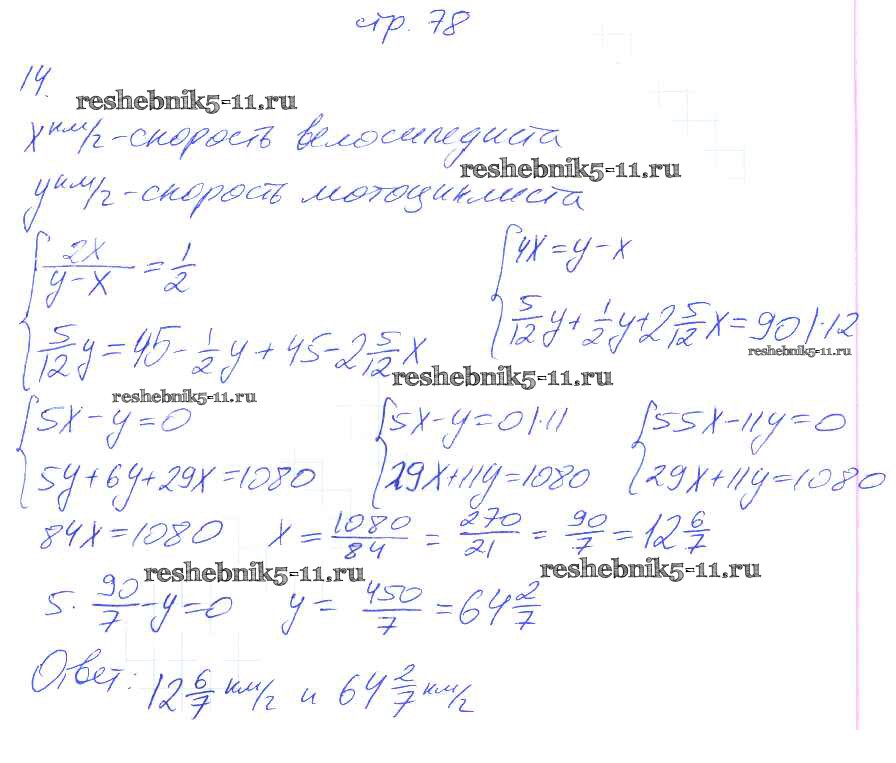 стр. 78
14.
reshebnik5-11.ru
x км/ч - скорость велосипедиста
reshebnik5-11.ru
y км/ч - скорость мотоциклиста
{ 2x/(y-x) = 1/2 { 4x = y - x
5/12 y = 45 - 1/2 y + 45 - 2 5/12 x 5/12 y + 1/2 y + 2 5/12 x = 90 |·12
reshebnik5-11.ru
reshebnik5-11.ru
reshebnik5-11.ru
{ 5x - y = 0 { 5x - y = 0 |·11 { 55x - 11y = 0
5y + 6y + 29x = 1080 29x + 11y = 1080 29x + 11y = 1080
84x = 1080 x = 1080/84 = 270/21 = 90/7 = 12 6/7
reshebnik5-11.ru reshebnik5-11.ru
5 · 90/7 - y = 0 y = 450/7 = 64 2/7
Ответ: 12 6/7 км/ч и 64 2/7 км/ч